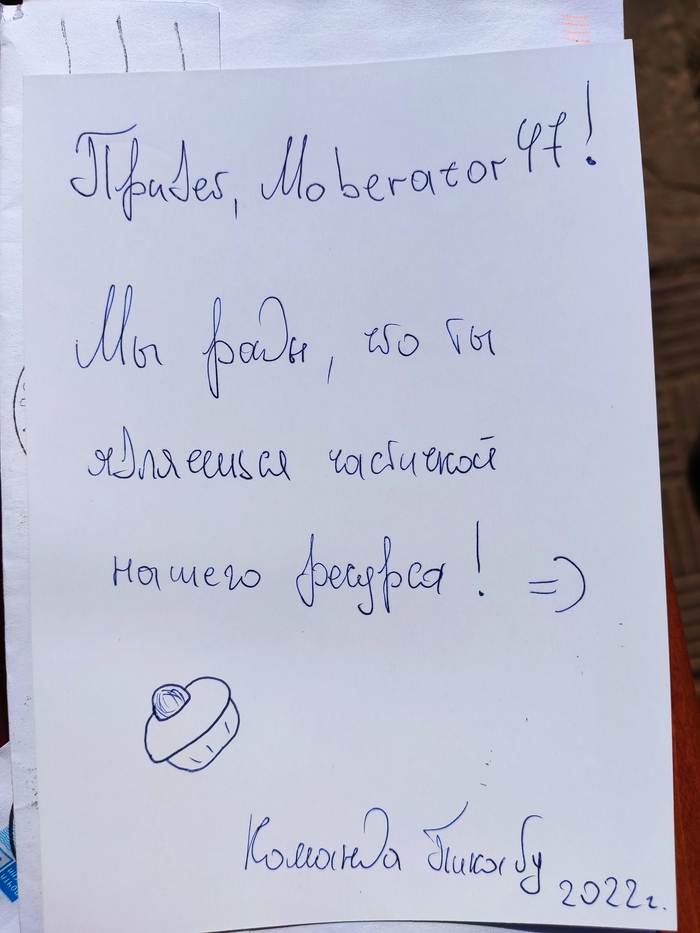 Привет, Moberator 47!
Мы рады, что ты
являешься частичкой
нашего ресурса! =)
Команда Пикабу
2022г.